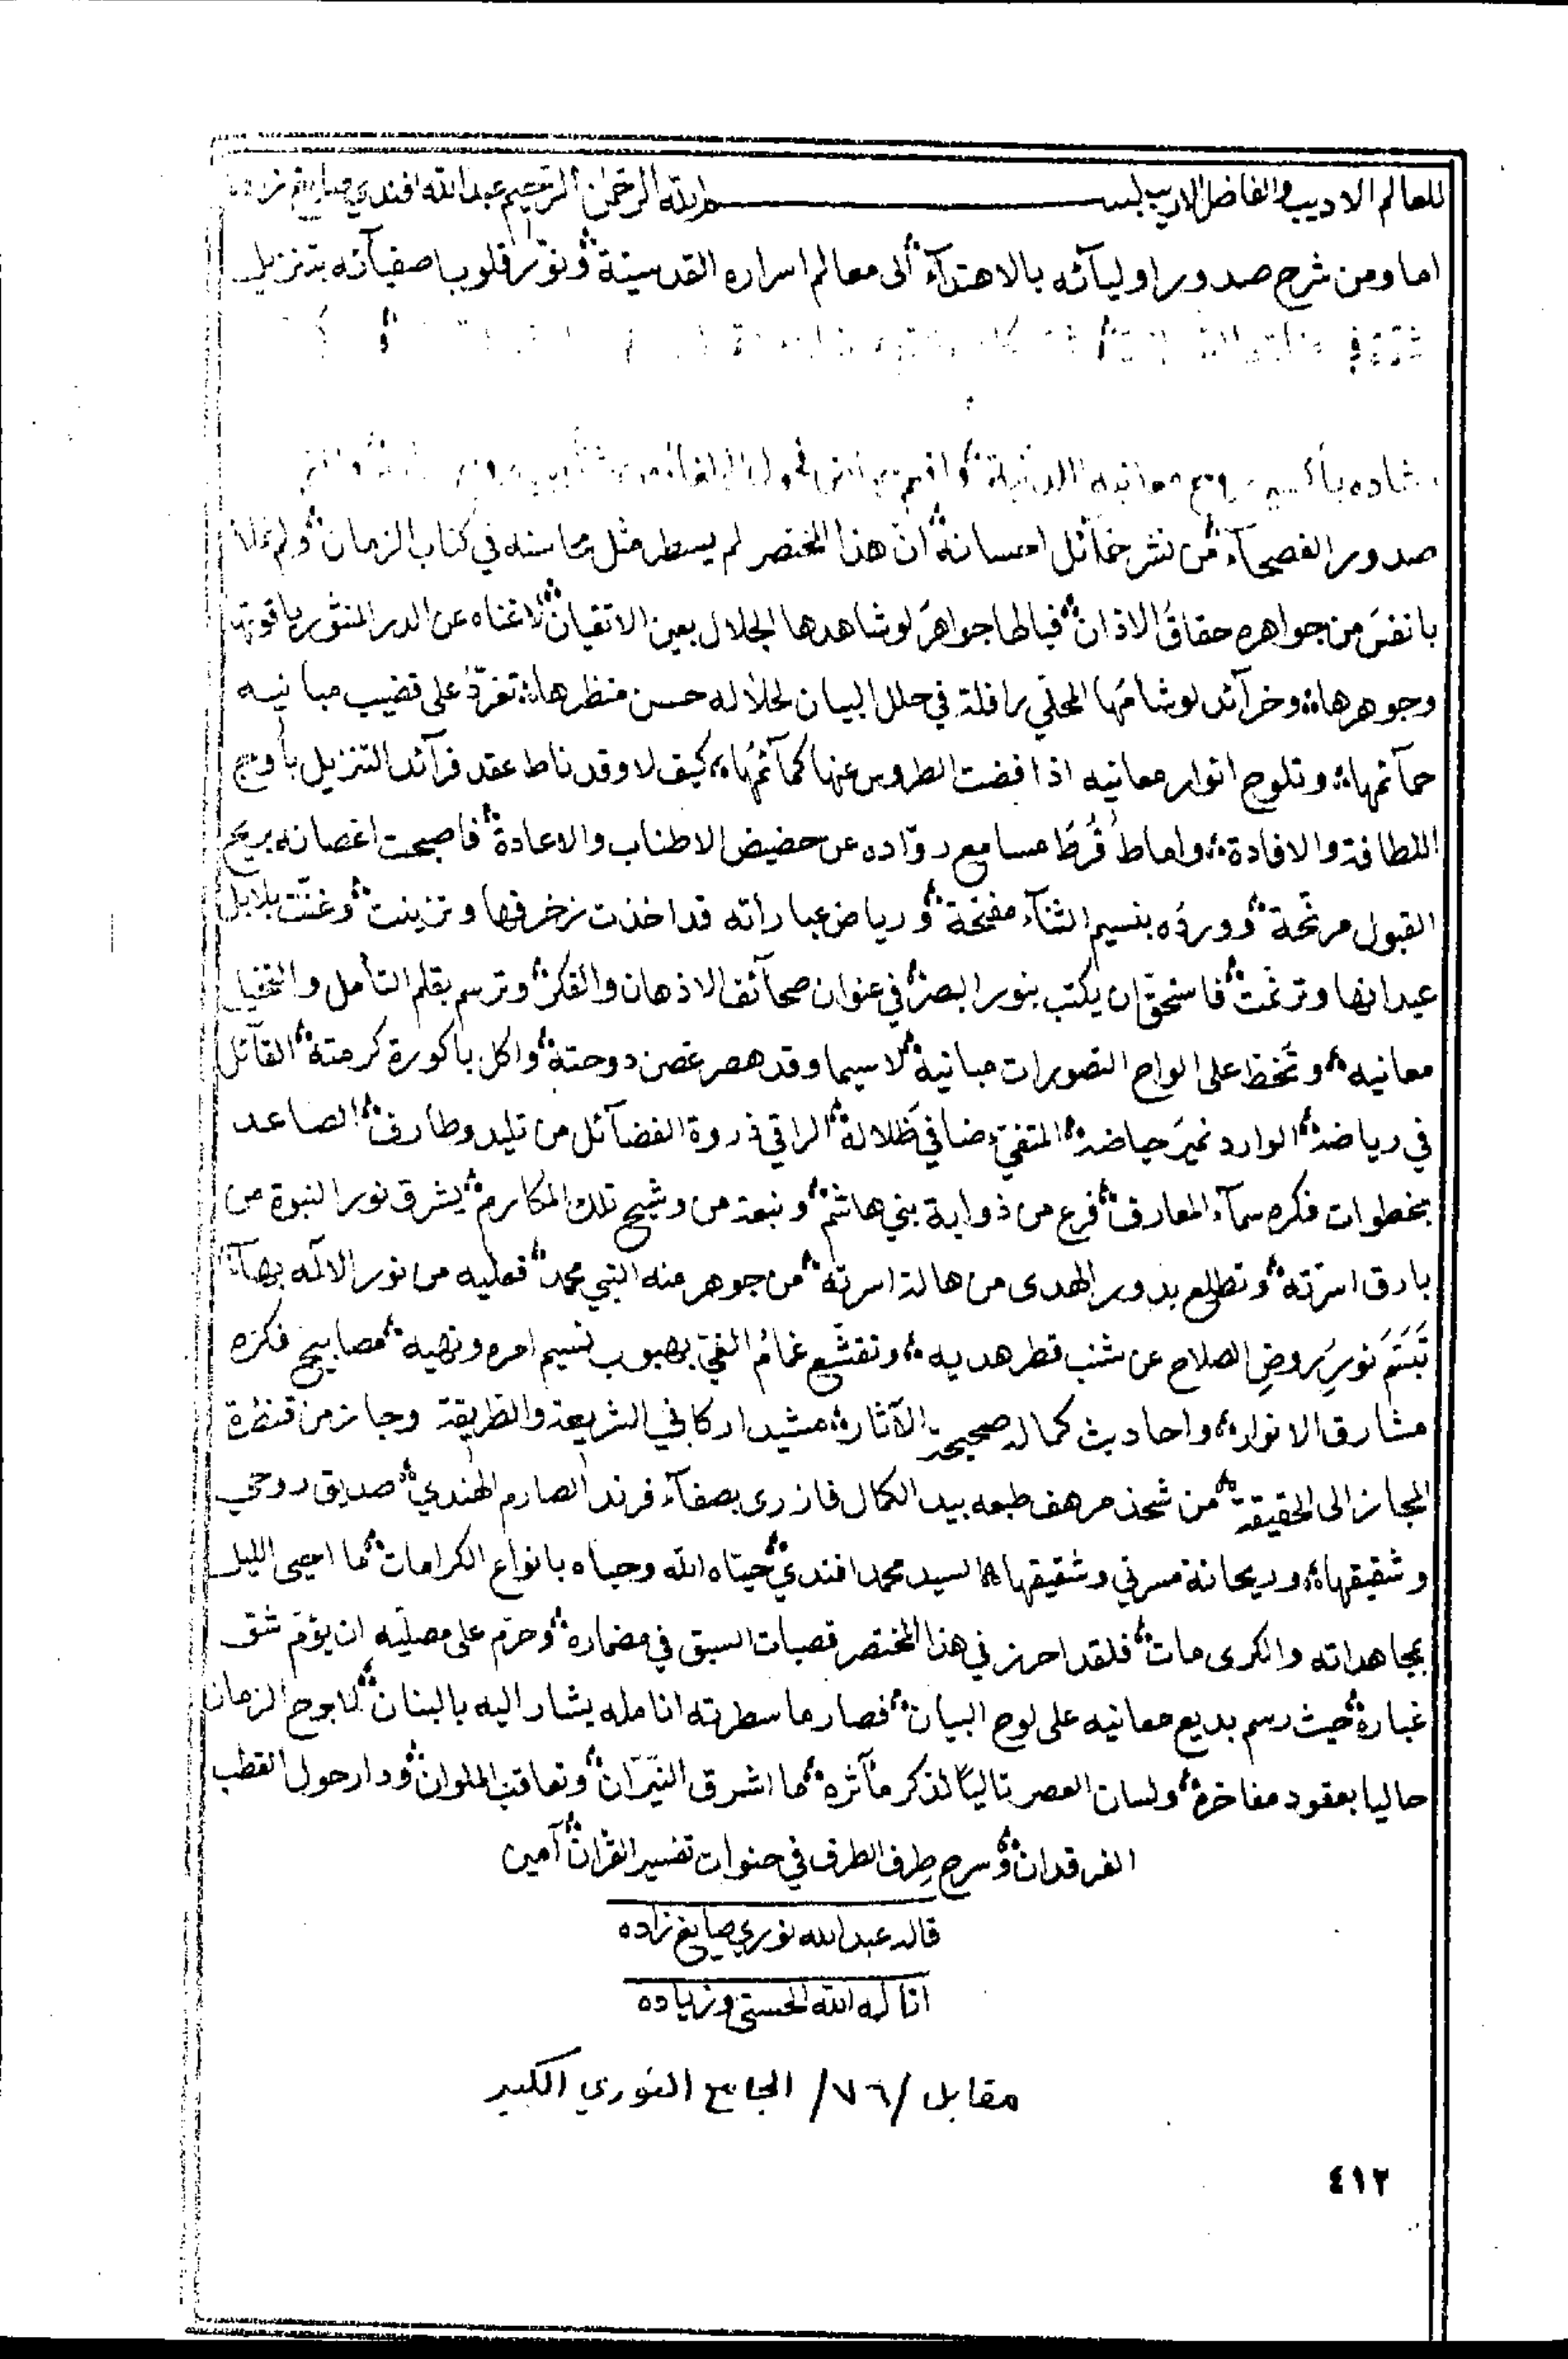 للعالم الاديب والفاضل الاريب بسم الله الرحمن الرحيم عبد الله افندي صايغ زاده
اما ومن شرح صدور اوليآئه بالاهتدآء الى معالم اسراره القدسية ونوّر قلوب اصفيآئه بتنزيل
معانيه
صدور الفصحآء من نشر خمائل احسانه ان هذا المختصر لم يسطر مثل محاسنه في كتاب الزمان ولم تملأ
بانفسَ من جواهره حقاقَ الاذان فيالها جواهرَ لو شاهدها الجلال بعين الاتقان لاغناه عن الدر المنثور ياقوتها
وجوهرها وخرآئد لو شامَها المحلّي رافلة في حلل البيان لحلأ له حسن منظرها تغرّد على قضيب مبانيه
حمآئمها وتلوح انوار معانيه اذا فضت الطروس عنها كمآئمُها كيف لا وقد ناط عقد فرآئد التنزيل بأوج
اللطافة والافادة واماط قُرطَ مسامع روّاده عن حضيض الاطناب والاعادة فاصبحت اغصانه بريح
القبول مرنحة ووردُه بنسيم الثنآء مفتحة ورياض عباراته قد اخذت زخرفها وتزينت وغنّت بلابل
عيدانها وترنمت فاستحق ان يكتب بنور البصر في عنوان صحآئف الاذهان والفكر وترسم بقلم التأمل والتخيل
معانيه وتحفظ على الواح التصورات مبانيه لاسيما وقد هصر غصن دوحته واكل باكورة كرمته القآئل
في رياضه الوارد نميرَ حياضه المتفيّء ضافي ظلاله الراقي ذروة الفضآئل من تليد وطارف الصاعد
بخطوات فكره سمآء المعارف فرع من ذوابة بني هاشم ونبعة من وشيج تلك المكارم يشرق نور النبوة من
بارق اسرّته وتطلع بدور الهدى من هالة اسرته من جوهر منه النبي محمد فعليه من نور الاله بهآء
تَبَسَّمَ نَورُ روضِ الصلاح عن شنب قطر هديه وتقشّع غمامُ الغيّ بهبوب نسيم امره ونهيه مصابيح فكره
مشارق الانوار واحاديث كماله صحيحة الآثار مشيد اركاني الشريعة والطريقة وجاز من قنطرة
المجاز الى الحقيقة من شحذ مرهف طبعه بيد الكمال فازرى بصفآء فرند الصارم الهندي صديق روحي
وشقيقها وريحانة مسرتي وشقيقها السيد محمد افندي حيّاه الله وحباه بانواع الكرامات ما احيى الليل
بمجاهداته والكرى مات فلقد احرز في هذا المختصر قصبات السبق في مضماره وحرّم على مصلّيه ان يؤمّ شق
غباره حيث رسم بديع معانيه على لوح البيان فصار ما سطرته انامله يشار اليه بالبنان لا بوح الزمان
حاليا بعقود مفاخره ولسان العصر تاليًا لذكر مآثره ما اشرق النيّران وتعاقب الملوان ودار حول القطب
الفرقدان وسرح طِرف الطرف في حنوات تفسير القرآن آمين
قاله عبد الله نوري صايغ زاده
اناله الله الحسنى وزياده
مقابل /٧٦/ الجامع النوري الكبير
٤١٢